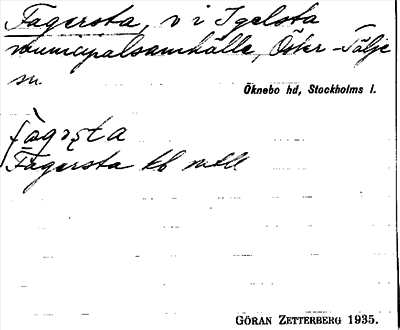 Fagersta, v i Igelsta
municipalsamhälle, Öster-Tälje
sn
Öknebo hd, Stockholms l.
Fagersta
GÖRAN ZETTERBERG 1935.